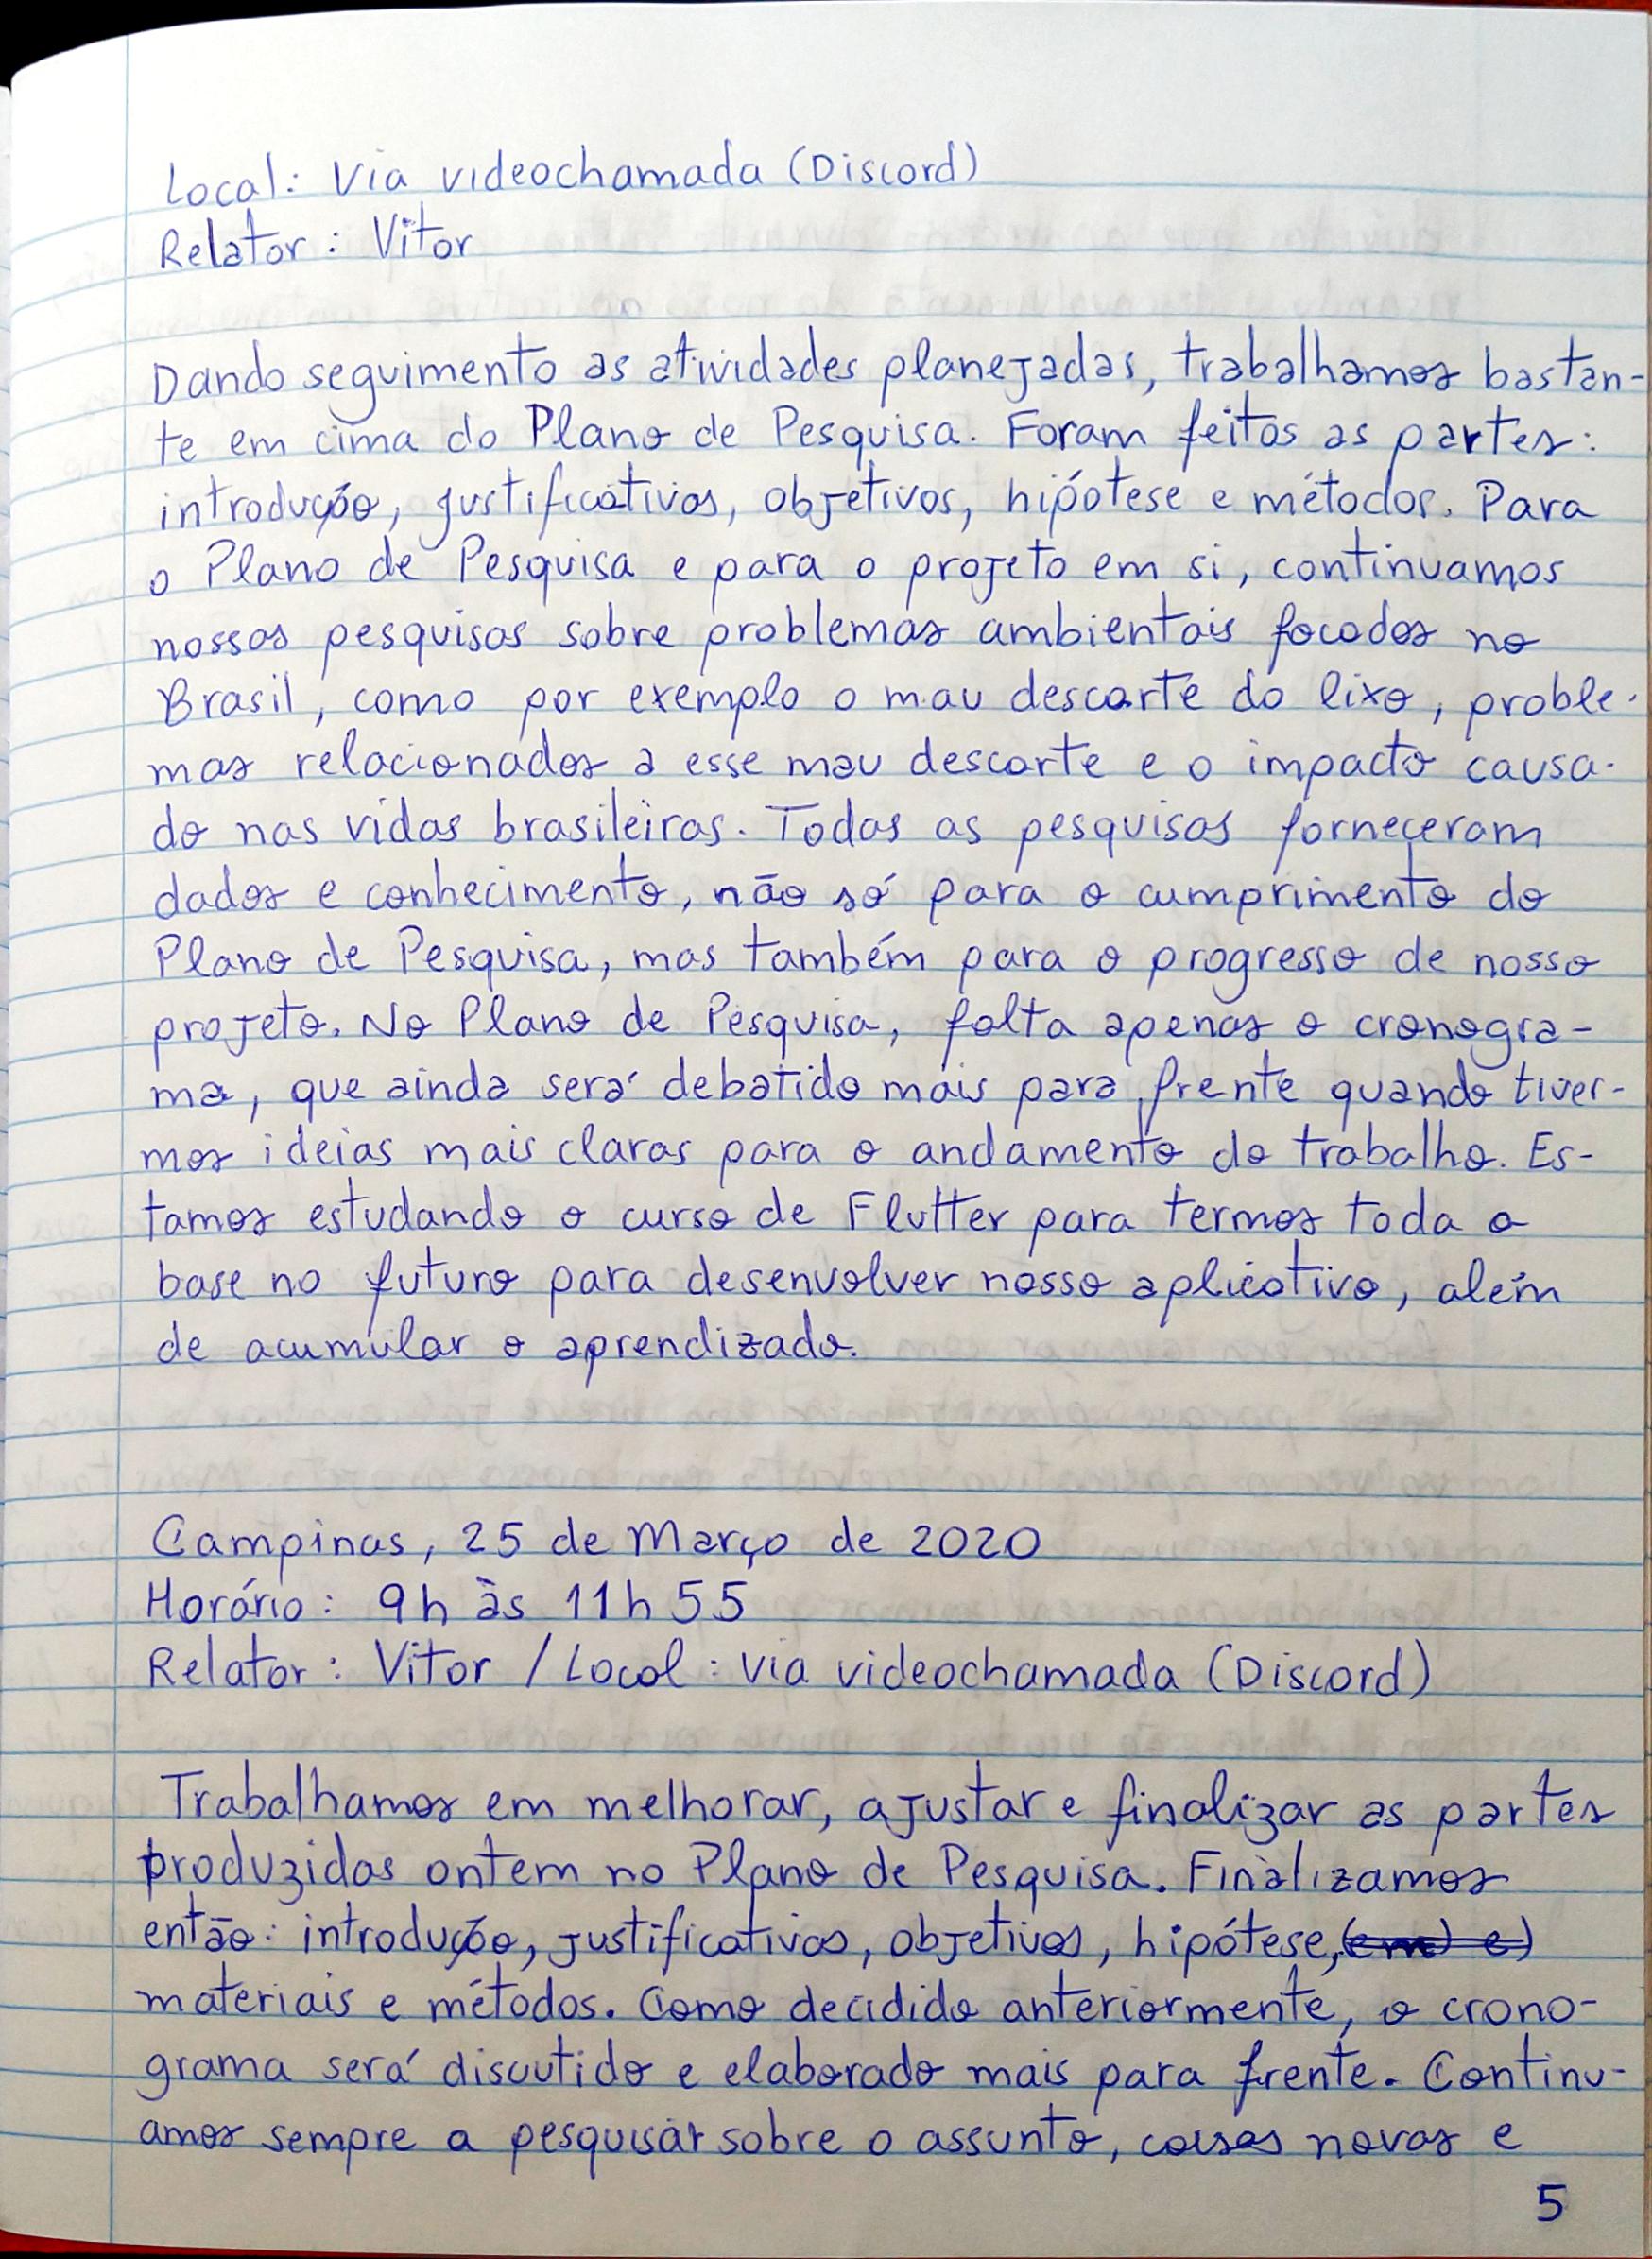 Local: Via videochamada (Discord)
Relator: Vitor
Dando seguimento as atividades planejadas, trabalhamos bastan-
te em cima do Plano de Pesquisa. Foram feitos as partes:
introdução, justificativas, objetivos, hipótese e métodos. Para
o Plano de Pesquisa e para o projeto em si, continuamos
nossas pesquisas sobre problemas ambientais focados no
Brasil, como por exemplo o mau descarte do lixo, proble-
mas relacionados a esse mau descarte e o impacto causa-
do nas vidas brasileiras. Todas as pesquisas forneceram
dados e conhecimento, não só para o cumprimento do
Plano de Pesquisa, mas também para o progresso de nosso
projeto. No Plano de Pesquisa, falta apenas o cronogra-
ma, que ainda será debatido mais para frente quando tiver-
mos ideias mais claras para o andamento do trabalho. Es-
tamos estudando o curso de Flutter para termos toda a
base no futuro para desenvolver nosso aplicativo, além
de acumular o aprendizado.
Campinas, 25 de Março de 2020
Horário: 9h às 11h55
Relator: Vitor / Local: via videochamada (Discord)
Trabalhamos em melhorar, ajustar e finalizar as partes
produzidas ontem no Plano de Pesquisa. Finalizamos
então: introdução, justificativas, objetivos, hipótese, (em) e)
materiais e métodos. Como decidido anteriormente, o crono-
grama será discutido e elaborado mais para frente. Continu-
amos sempre a pesquisar sobre o assunto, coisas novas e
5